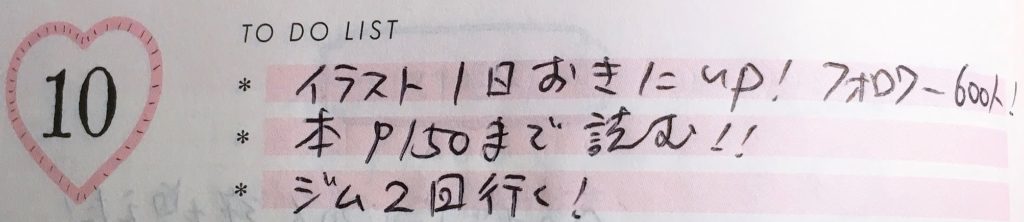 10
TO DO LIST
* イラスト1日おきにup! フォロワー600人!
* 本P150まで読む!!
* ジム2回行く!